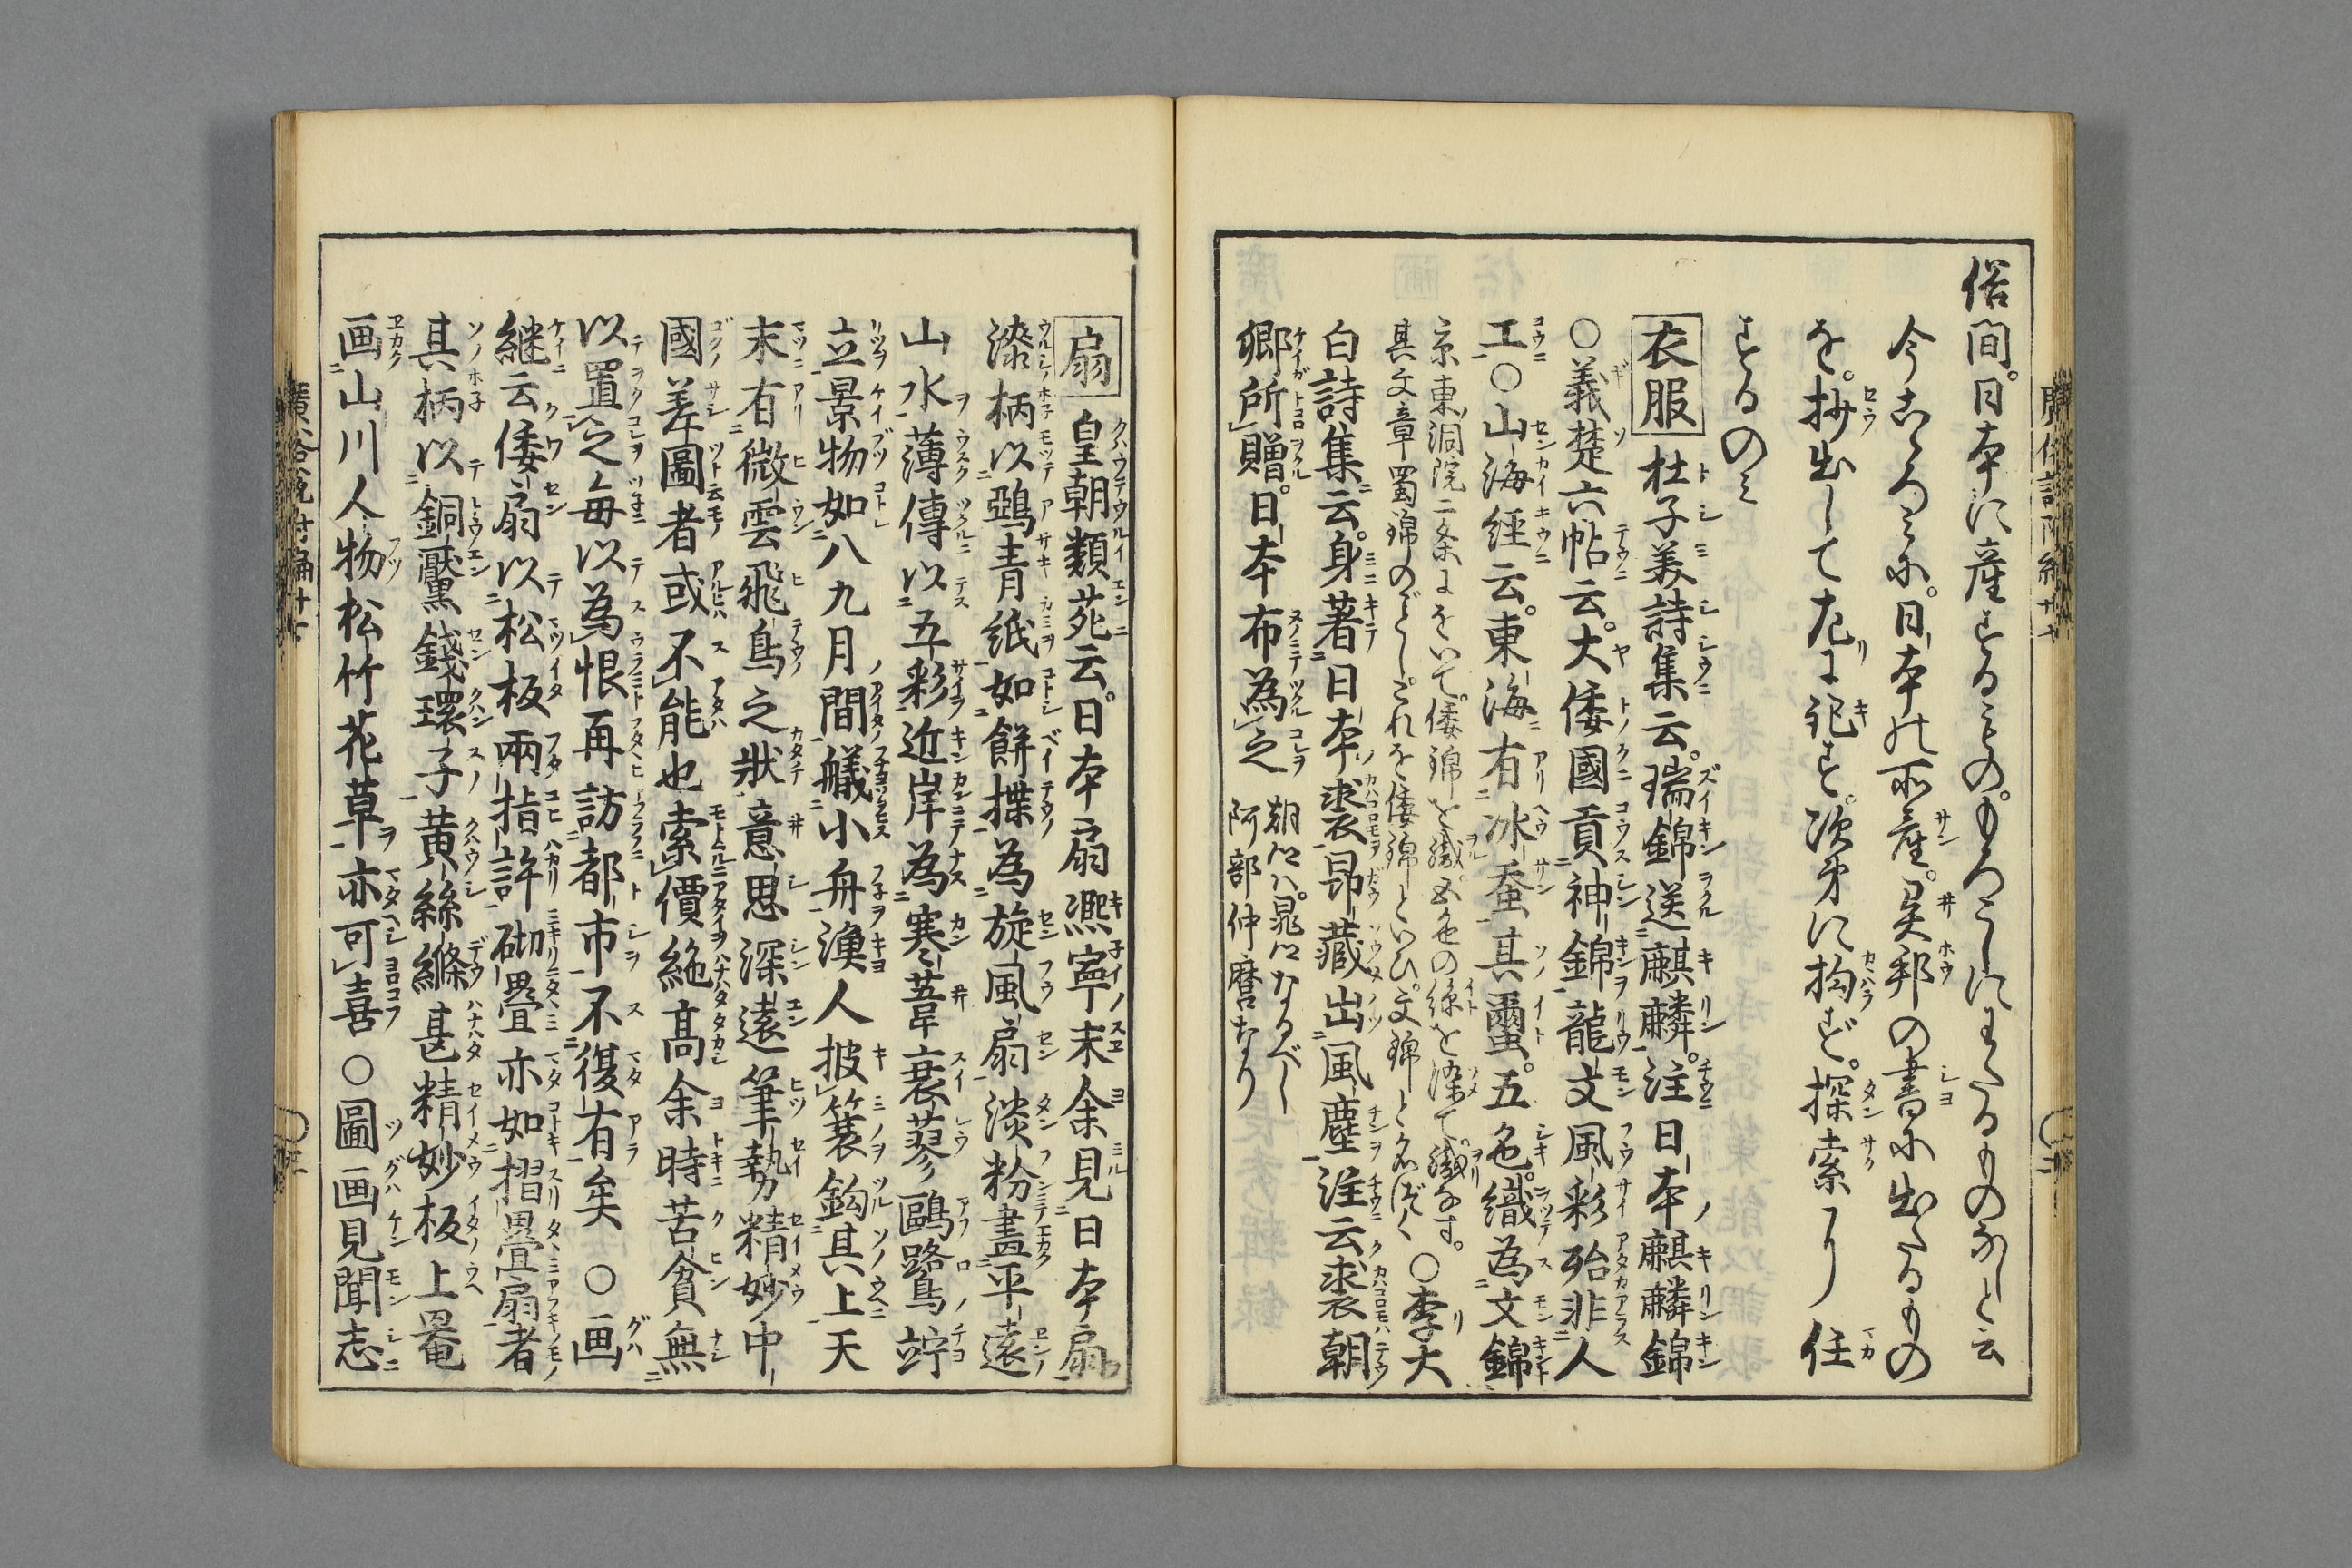 俗間。日本に産するもの。もろこしにわたるものなしと云
今こゝろミに。日本の所産。異邦の書に出たるもの
を。抄出して左に記す。次第に拘らず。探索より任
するのミ
衣服 杜子美詩集云。瑞錦送麒麟。注日本麒麟錦
〇義楚六帖云。大倭國貢神錦龍文風彩殆非人
工〇山海經云。東海有氷蚕其璽。五色。織為文錦
京東洞院二条にをいて。倭錦を織。五色の絲を染て。織なす。
其文章蜀錦のごとし。これを倭錦といひ。文錦と名づく 〇李太
白詩集云。身著日本裘昂藏出風塵注云裘朝
卿所贈。日本布為之
朝ハ。晁ハなるべし
阿部仲麿なり
扇 皇朝類苑云。日本扇凞寧末余見日本扇
漆柄以鵶青紙如餅揲為旋風扇淡粉畫平遠
山水薄傳以五彩近岸為寒葦衰蓼鷗鷺竚
立景物如八九月間艤小舟漁人披簑鈎其上天
末有微雲飛鳥之狀意思深遠筆勢精妙中
國差圖者或不能也索價絶髙余時苦貧無
以置之毎以為恨再訪都市不復有矣 〇画
継云倭扇以松板兩指許砌疊亦如摺疊扇者
其柄以銅黶錢環子黄絲縧甚精妙板上罨
画山川人物松竹花草亦可喜 〇圖画見聞志